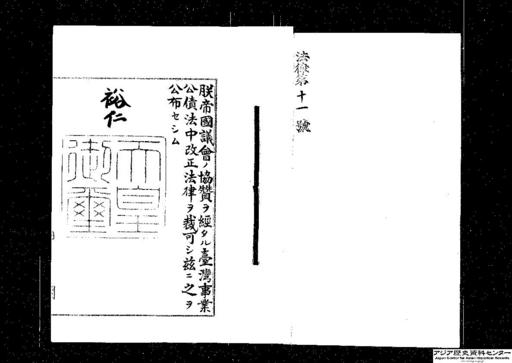 法律第十一號
朕帝國議會ノ協贊ヲ經タル臺灣事業
公債法中改正法律ヲ裁可シ茲ニ之ヲ
公布セシム
裕仁
天皇
御璽
アジア歴史資料センター
Japan Center for Asian Historical Records